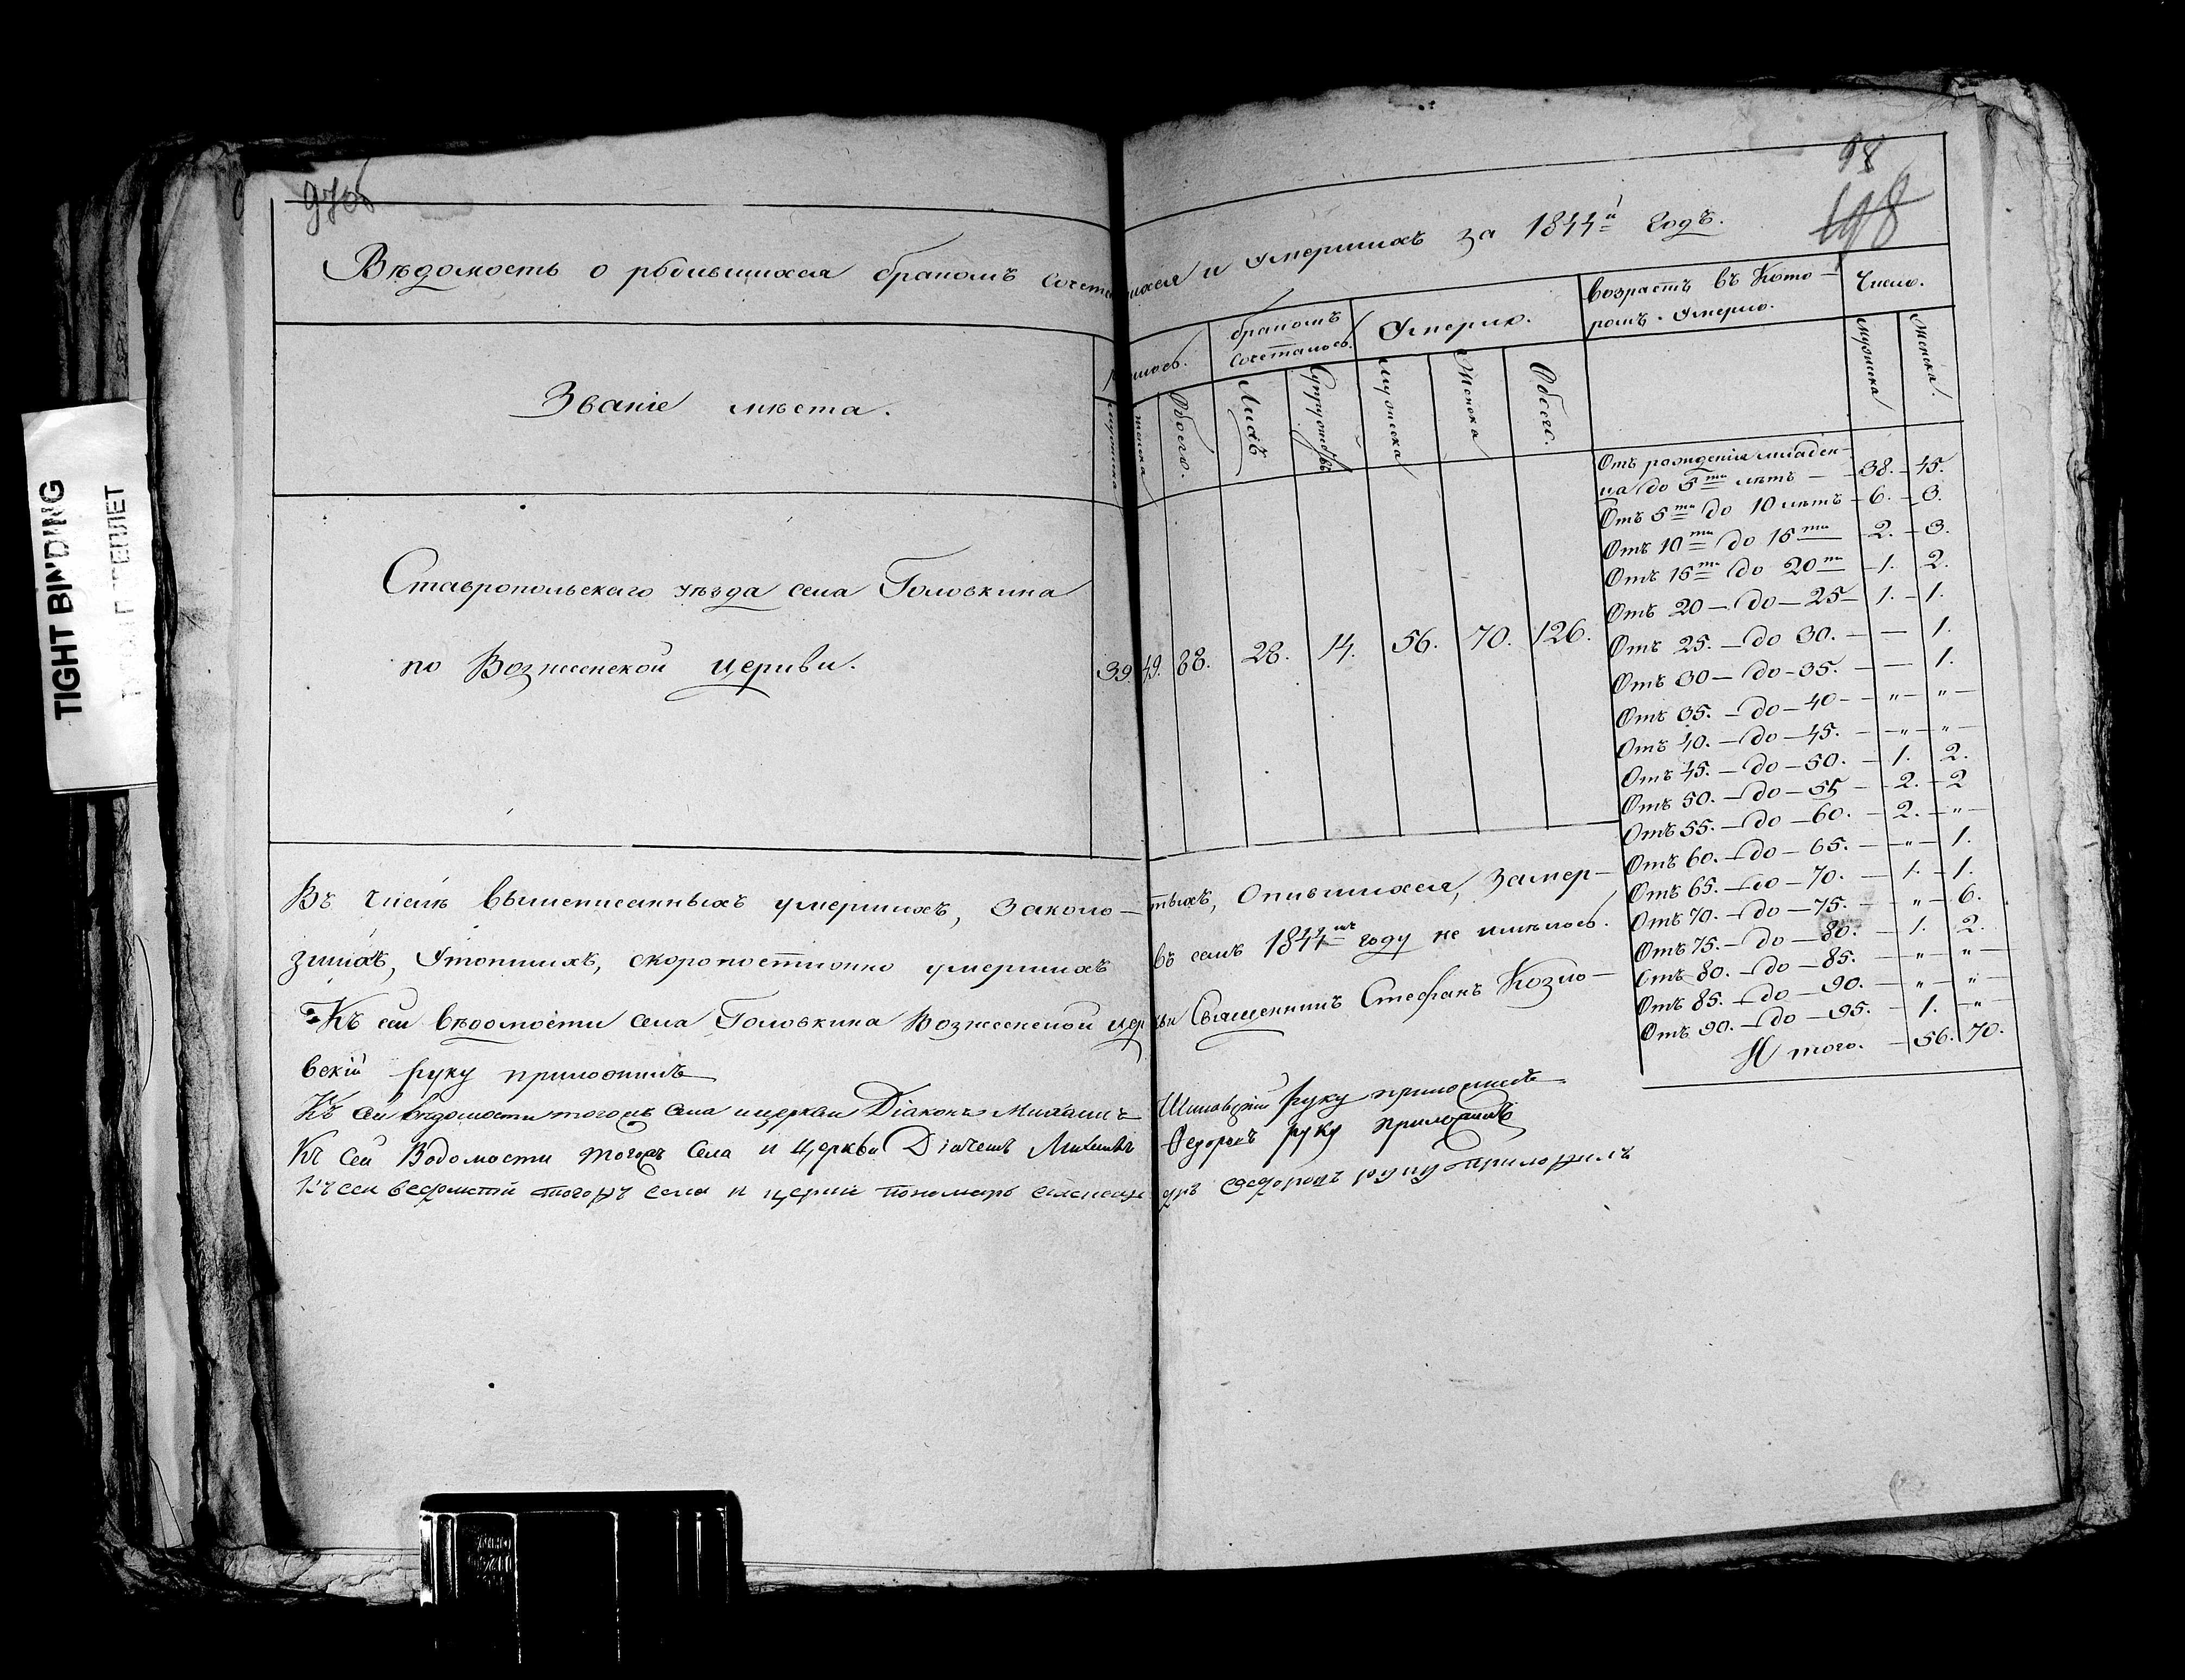 97об
98
198
Вѣдомость о родившихся бракомъ сочетавшихся и умершихъ за 1844й годъ.
Званіе мѣста.
мужеска
женска
Обоего.
бракомъ сочеталось.
Лицъ
Супружествъ
Умерло.
мужеска
Женска
Обоего.
возрастъ въ Кото-
ромъ умерло.
Число.
мужеска
Женска.
Ставропольскаго уѣзда села Головкина
по Вознесенской церкви.
39. 49. 88. 28. 14. 56. 70. 126.
Отъ рожденія младен-
ца до 5ти лѣтъ — 38. — 45.
Отъ 5ти до 10 лѣтъ — 6. — 3.
Отъ 10ти до 15ти — 2. — 3.
Отъ 15ти до 20ти — 1. 2.
Отъ 20 — до — 25 — 1. — 1.
Отъ 25. — до 30. — — 1.
Отъ 30 — до — 35. — — 1.
Отъ 35. — до — 40 — " — " —
Отъ 40. — до — 45. — " — " —
Отъ 45. — до — 50. — 1. 2.
Отъ 50. — до — 55 — 2. — 2
Отъ 55. — до — 60. — 2. — " —
Отъ 60. — до — 65. — " — 1.
Отъ 65. — до — 70. — 1. — 1.
Отъ 70. — до — 75. — " — 6.
Отъ 75. — до — 80. — 1. 2.
Отъ 80. — до — 85. — " — " —
Отъ 85. — до — 90. — " — " —
Отъ 90. — до — 95. — 1. — " —
И того. — 56. 70.
Въ числѣ вышеписанныхъ умершихъ, заколо-тыхъ, Опившихся, Замер-
зшихъ, Утопшихъ, скоропостижно умершихъ въ семъ 1844мъ году не имѣлось.
Къ сей вѣдомости села Головкина Вознесенской церкви Священникъ Стефанъ Козло-
вскій руку приложилъ
Къ сей вѣдомости тогожъ села и церкви Діаконъ Михаилъ руку приложилъ
Къ сей Ведомости тогожъ села и Церкви Дiячекъ руку приложилъ
Къ сей ведомости тогожъ села и церкви пономарь руку приложилъ
TIGHT BINDING